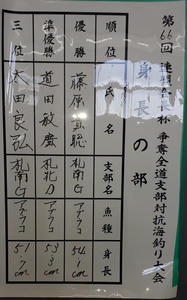 第66回 連盟 杯 争奪全道支部対抗海釣り大会
身長の部
順位 氏名 支部名 魚種 身長
優勝 藤原 聡 札南G アブラコ 54.1cm
準優勝 道田敏廣 札北D アブラコ 53.3cm
三位 太田良弘 札南G アブラコ 51.7cm